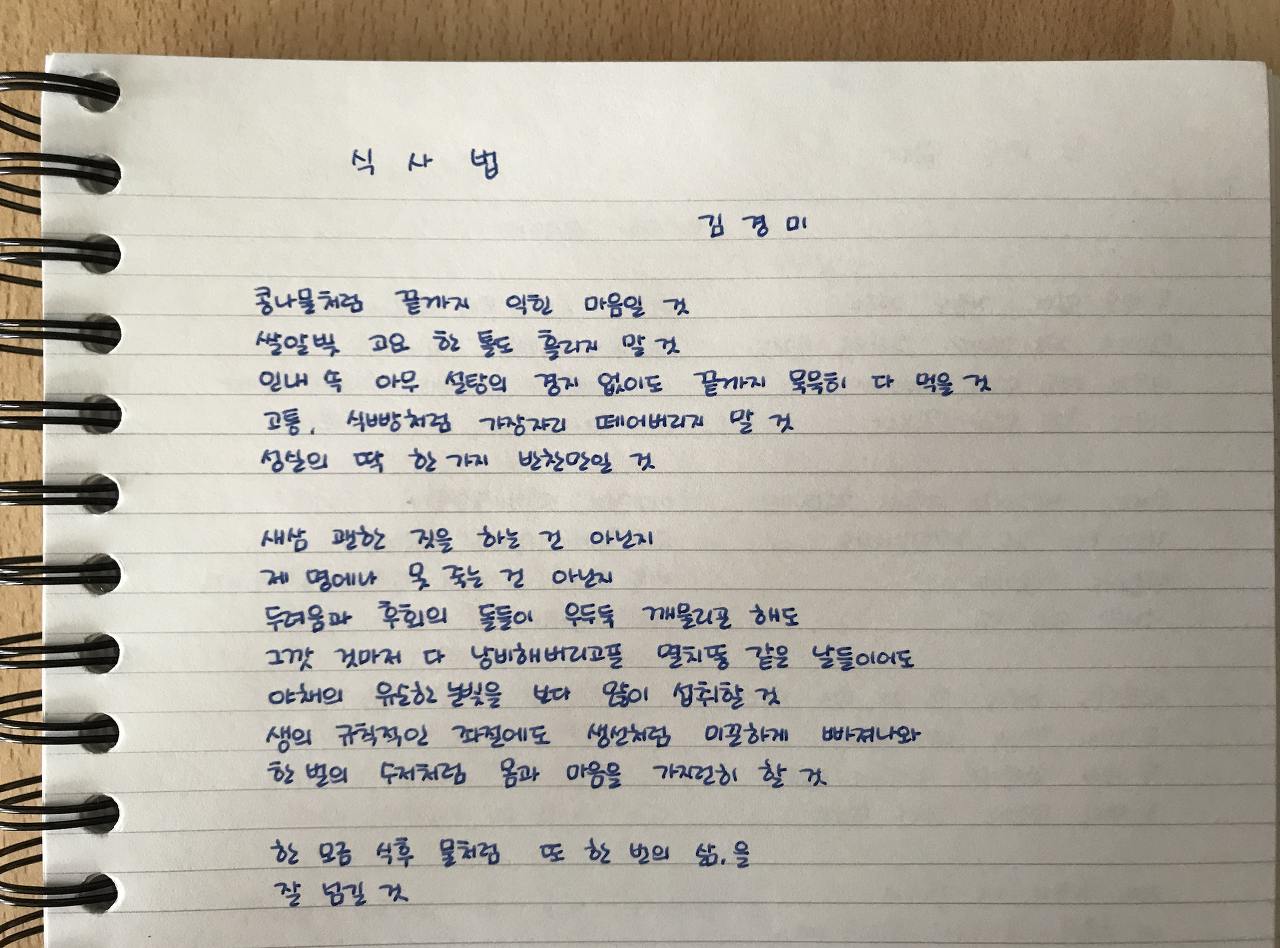 식 사 법
김 경 미
콩나물처럼 끝까지 익힌 마음일 것
쌀알빛 고요 한 톨도 흘리지 말 것
인내 속 아무 설탕의 경지 없이도 끝까지 묵묵히 다 먹을 것
고통, 식빵처럼 가장자리 떼어버리지 말 것
성실의 딱 한 가지 반찬만일 것
새삼 괜한 짓을 하는 건 아닌지
제 명에나 못 죽는 건 아닌지
두려움과 후회의 돌들이 우두둑 깨물리곤 해도
그깟 것마저 다 낭비해버리고픈 멸치똥 같은 날들이어도
야채의 유순한 눈빛을 보다 많이 섭취할 것
생의 규칙적인 좌절에도 생선처럼 미끈하게 빠져나와
한 벌의 수저처럼 몸과 마음을 가지런히 할 것
한 모금 식후 물처럼 또 한 번의 삶,을
잘 넘길 것